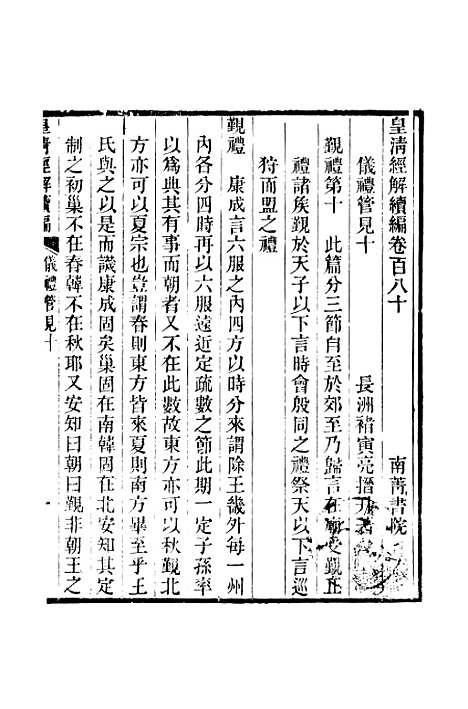 皇淸經解續編卷百八十
南菁書院
儀禮管見十
長洲褚寅亮搢升著
覲禮第十　此篇分三節自至於郊至乃歸言在廟受覲正
禮諸矦覲於天子以下言時會殷同之禮祭天以下言巡
狩而盟之禮
覲禮　康成言六服之內四方以時分來謂除王畿外每一州
內各分四時再以六服遠近定疏數之節此期一定子孫率
以爲典其有事而朝者又不在此數故東方亦可以秋覲北
方亦可以夏宗也豈謂春則東方皆來夏則南方畢至乎王
氏與之以是而譏康成固矣巢固在南韓固在北安知其定
制之初巢不在春韓不在秋耶又安知曰朝曰覲非朝王之
皇淸經解續編
儀禮管見十